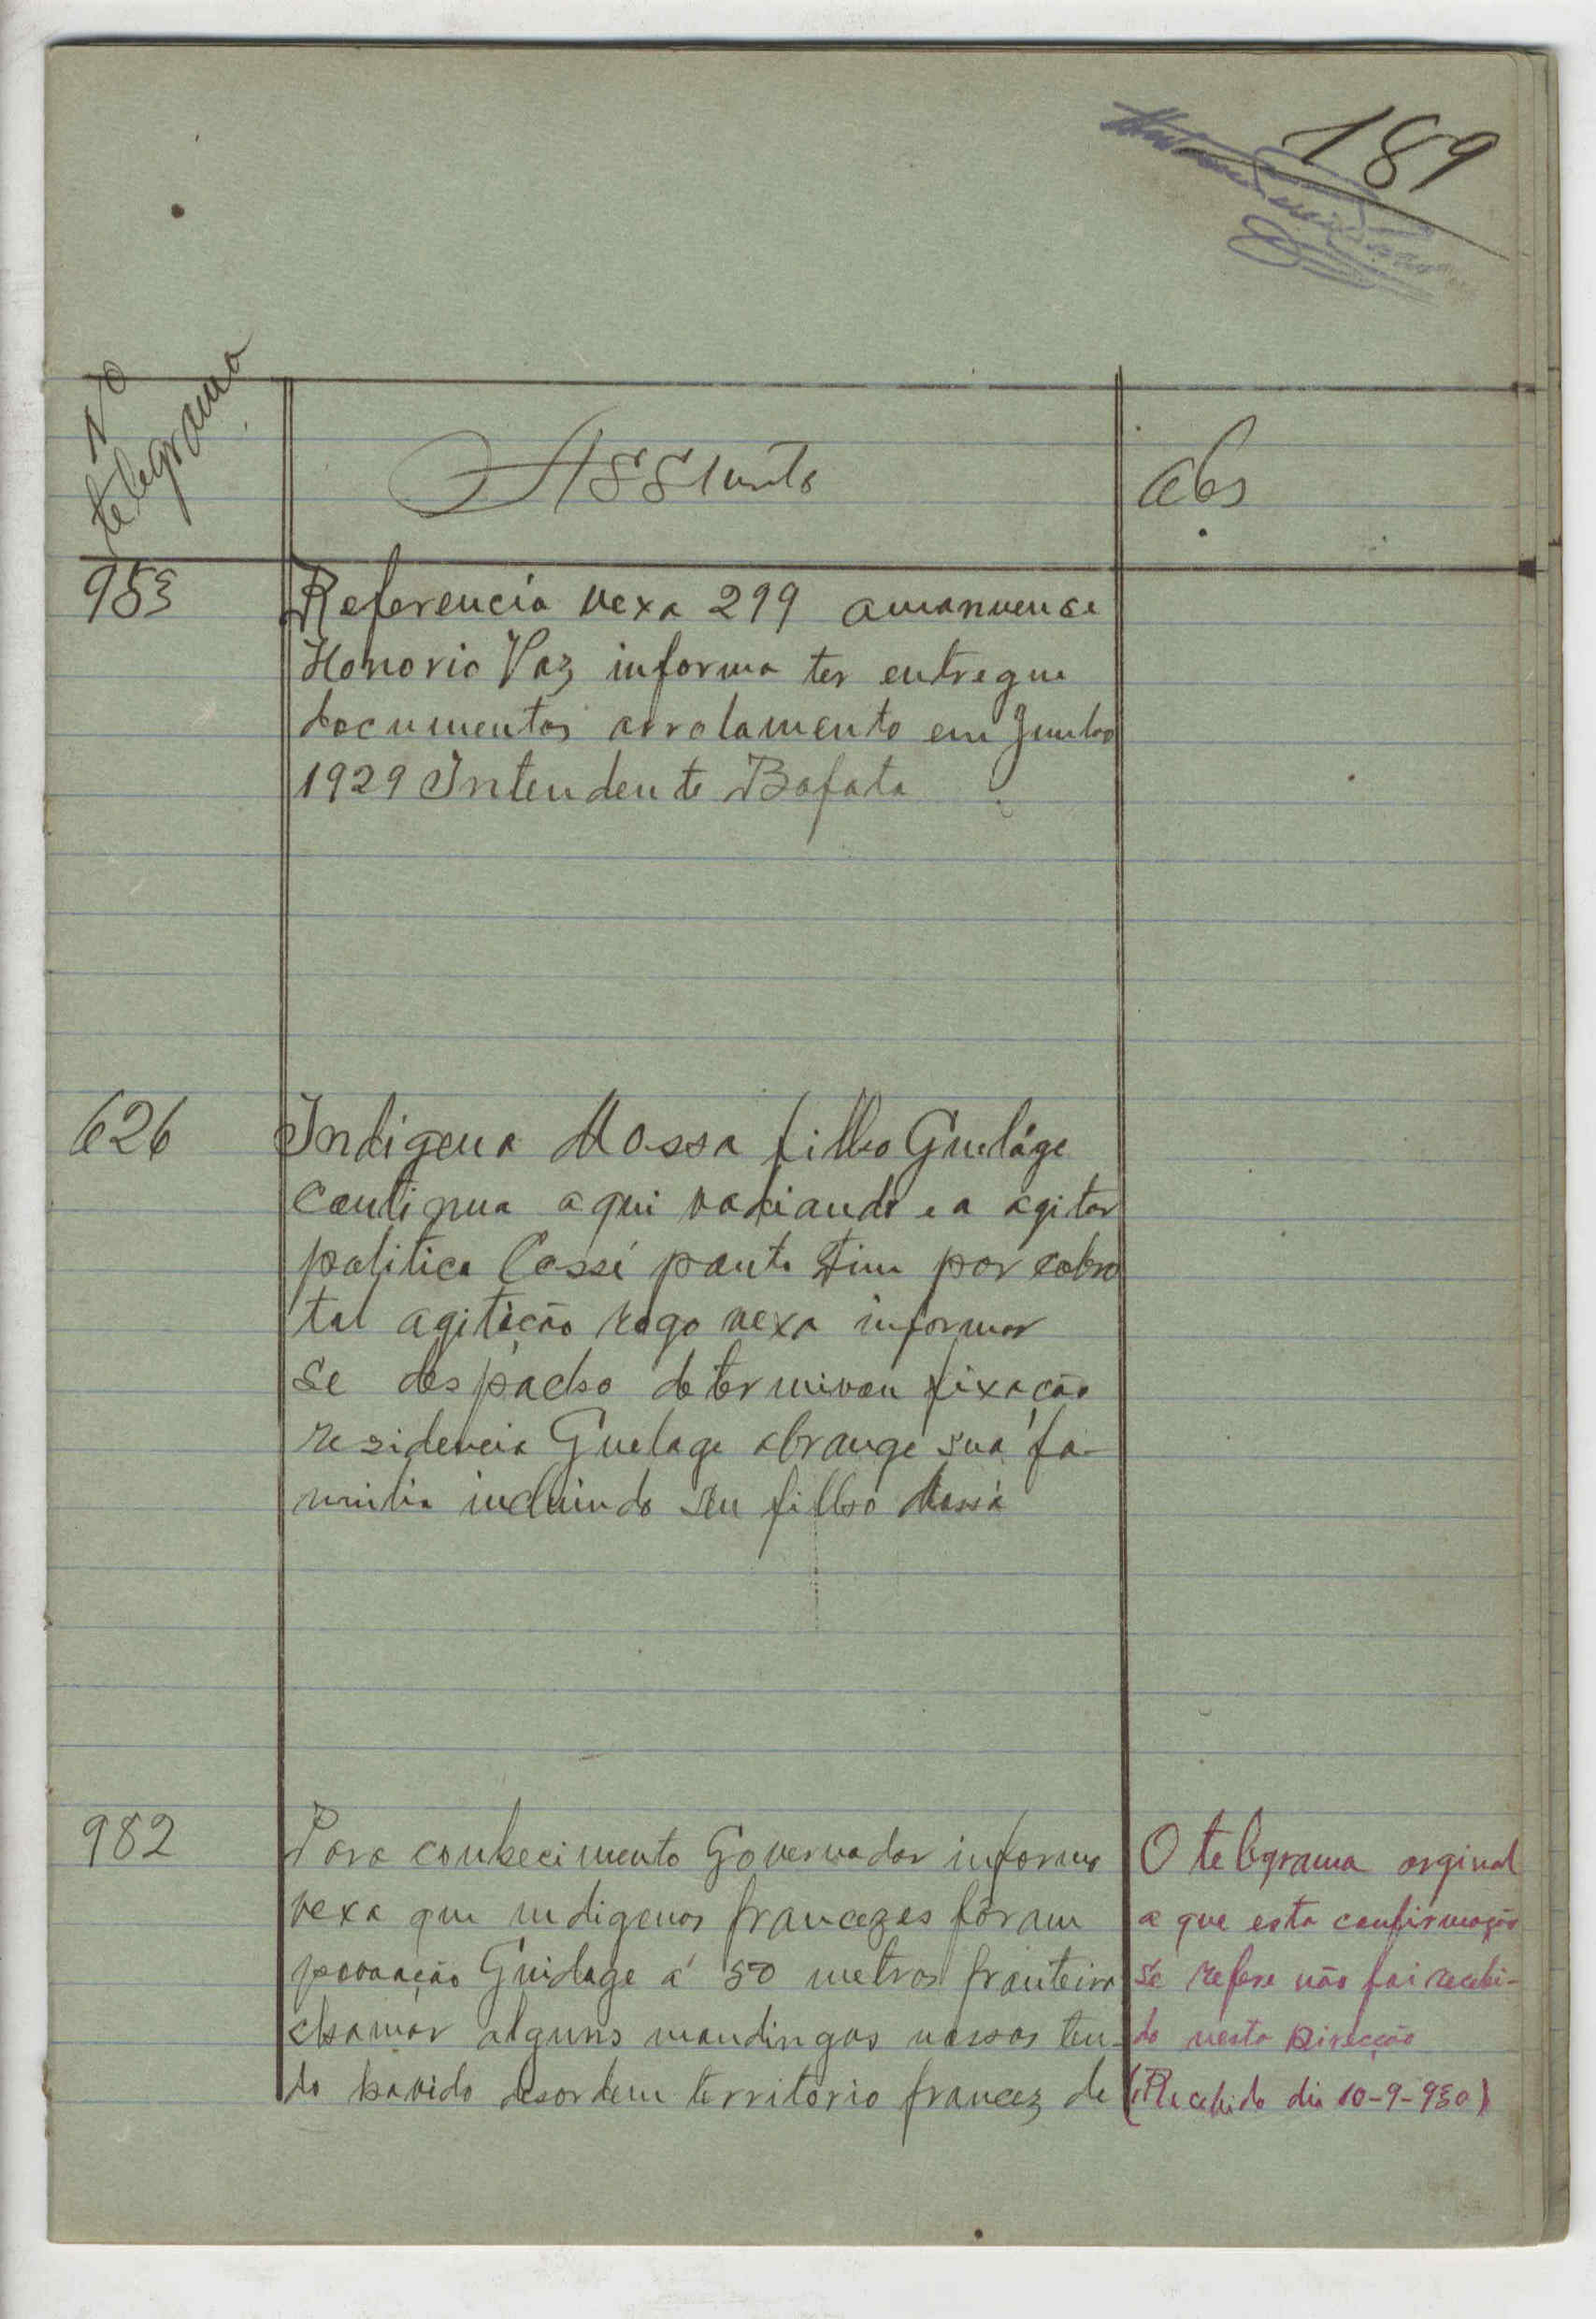 189
Nº
telegrama
Assunto
obs
983
Referencia vexa 299 amanuense
Honorio Vaz informa ter entregue
documentos arrolamento em Junho
1929 Intendente Bafata
626
Indigena Mossa filho Gueláge
continua aqui vadiando e a agitar
politica Cossé ponto Fim por cobro
tal agitação rogo vexa informar
se despacho determinou fixação
residencia Guelage abrange sua fa-
milia incluindo seu filho Mossá
982
Para conhecimento Governador informo
vexa que indigenas francezes fôram
povoação Guidage á 50 metros fronteira
chamar alguns mandingas nossos ten-
do havido desordem territorio francez de
O telegrama orginal
a que esta confirmação
se refere não foi recebi-
do nesta Direcção
(Recebido dia 10-9-930)